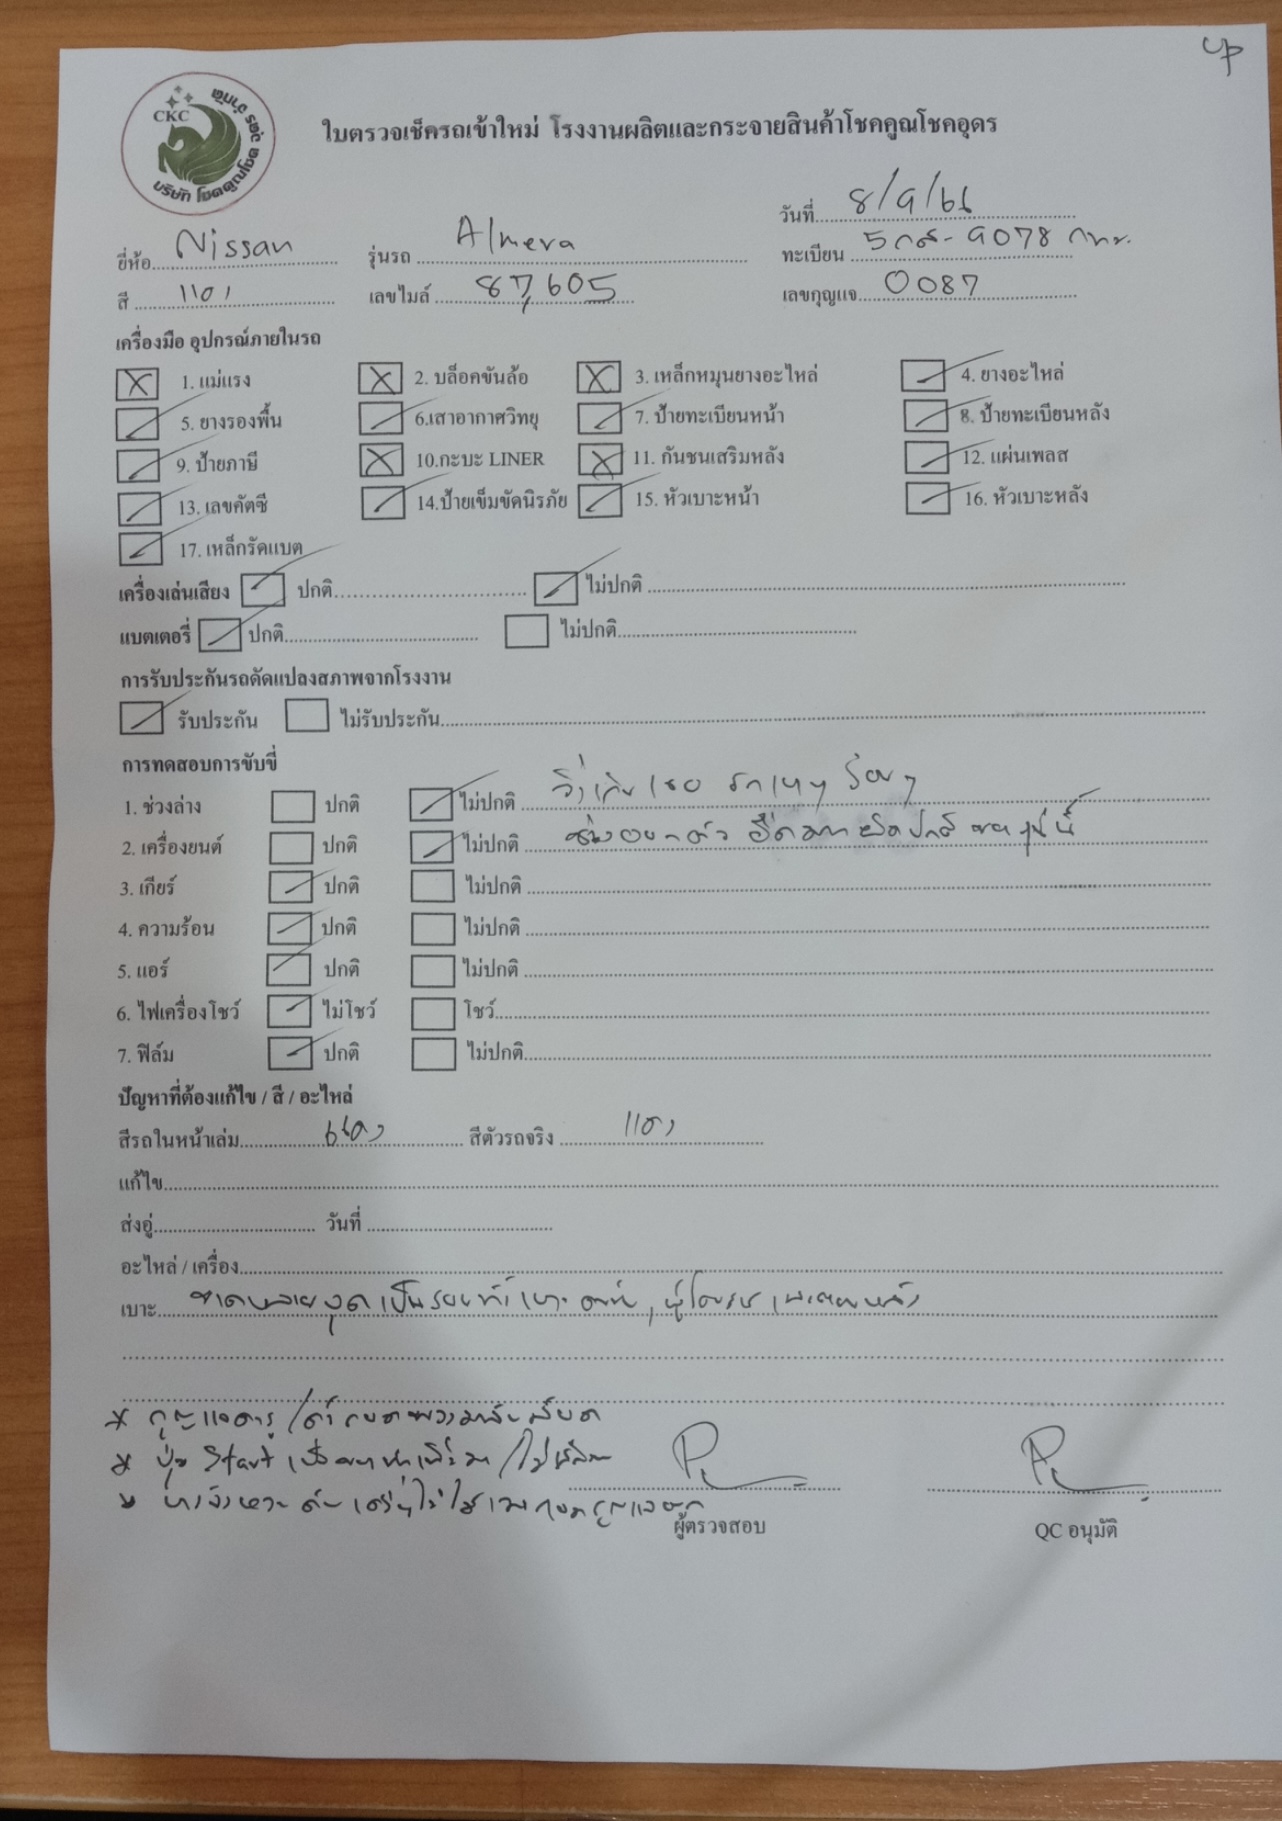 up
CKC
บริษัท โชคคูณโชค อุดร จำกัด
ใบตรวจเช็ครถเข้าใหม่ โรงงานผลิตและกระจายสินค้าโชคคูณโชคอุดร
วันที่ 8/9/66
ยี่ห้อ Nissan รุ่นรถ Almera ทะเบียน 5กส-9078 กทม.
สี แดง เลขไมล์ 87,605 เลขกุญแจ 0087
เครื่องมือ อุปกรณ์ภายในรถ
1. แม่แรง 2. บล็อคขันล้อ 3. เหล็กหมุนยางอะไหล่ 4. ยางอะไหล่
5. ยางรองพื้น 6.เสาอากาศวิทยุ 7. ป้ายทะเบียนหน้า 8. ป้ายทะเบียนหลัง
9. ป้ายภาษี 10.กะบะ LINER 11. กันชนเสริมหลัง 12. แผ่นเพลส
13. เลขคัตซี 14.ป้ายเข็มขัดนิรภัย 15. หัวเบาะหน้า 16. หัวเบาะหลัง
17. เหล็กรัดแบต
เครื่องเล่นเสียง ปกติ ไม่ปกติ
แบตเตอรี่ ปกติ ไม่ปกติ
การรับประกันรถดัดแปลงสภาพจากโรงงาน
รับประกัน ไม่รับประกัน
การทดสอบการขับขี่
1. ช่วงล่าง ปกติ ไม่ปกติ
2. เครื่องยนต์ ปกติ ไม่ปกติ
3. เกียร์ ปกติ ไม่ปกติ
4. ความร้อน ปกติ ไม่ปกติ
5. แอร์ ปกติ ไม่ปกติ
6. ไฟเครื่องโชว์ ไม่โชว์ โชว์
7. ฟิล์ม ปกติ ไม่ปกติ
ปัญหาที่ต้องแก้ไข / สี / อะไหล่
สีรถในหน้าเล่ม แดง สีตัวรถจริง แดง
แก้ไข
ส่งอู่ วันที่
อะไหล่ / เครื่อง
เบาะ
* กุญแจ
* ปุ่ม Start
ผู้ตรวจสอบ QC อนุมัติ